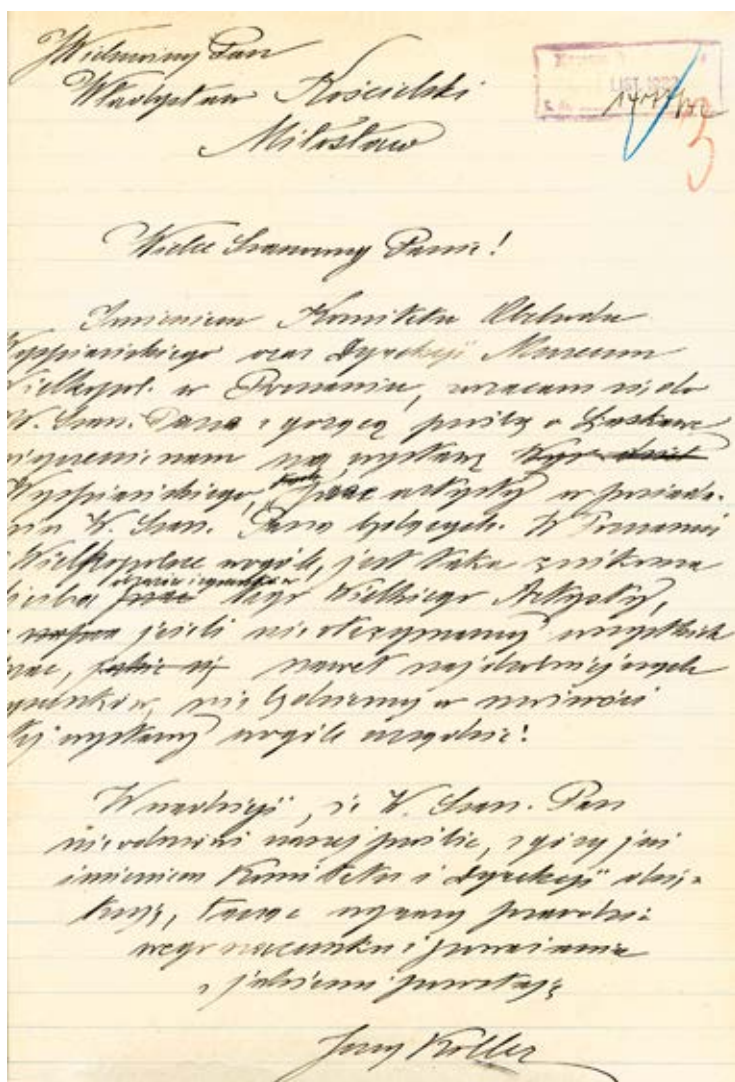 Wielmożny Pan
Władysław Kościelski
Miłosław
LIST
14/11/32
3
Wielce Szanowny Panie!
Imieniem Komitetu Obchodu
Wyspiańskiego oraz Dyrekcji Muzeum
Wielkopol. w Poznaniu, zwracam się do
W. Szan. Pana z gorącą prośbą o łaskawe
nam na wystawę dzieł
Wyspiańskiego, prac artysty w posiada-
niu W. Szan. Pana będących. W Poznaniu
i Wielkopolsce wogóle, jest taka znikoma
liczba prac tego Wielkiego Artysty,
jeśli nie otrzymamy wszystkich
prac, jakie są nawet najdrobniejszych
rysunków, nie będziemy w możności
tej wystawy wogóle urządzić!
W nadzieji, że W. Szan. Pan
nie odmówi naszej prośbie, z góry już
imieniem Komitetu i Dyrekcji dzię-
kuję, łącząc wyrazy prawdzi-
wego szacunku i poważania
z jakiemi pozostaję
Jerzy Koller